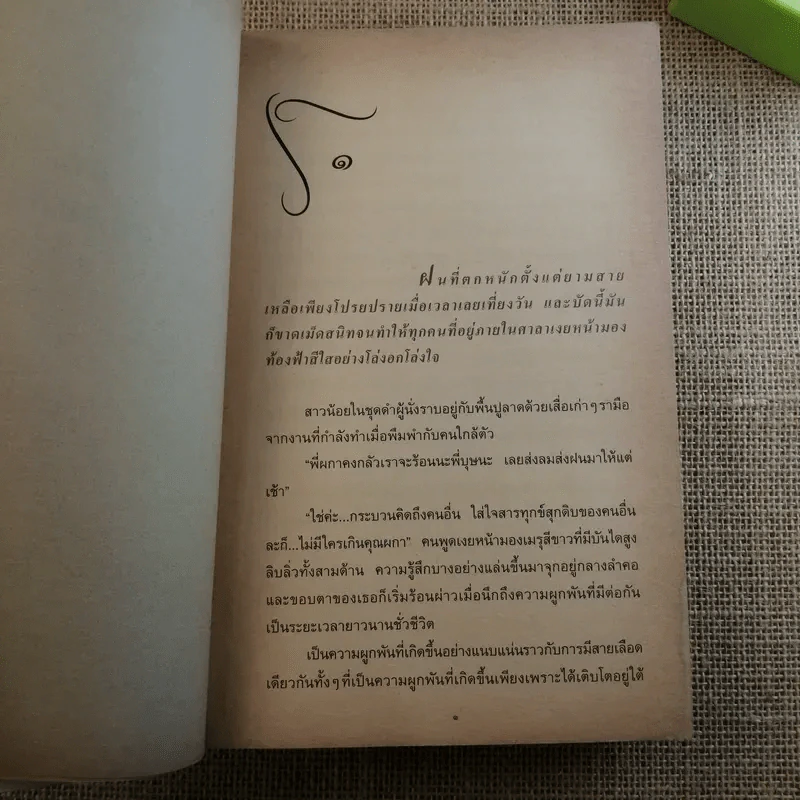 ๑
ฝนที่ตกหนักตั้งแต่ยามสาย
เหลือเพียงโปรยปรายเมื่อเวลาเลยเที่ยงวัน และบัดนี้มัน
ก็ขาดเม็ดสนิทจนทำให้ทุกคนที่อยู่ภายในศาลาเงยหน้ามอง
ท้องฟ้าสีใสอย่างโล่งอกโล่งใจ
สาวน้อยในชุดดำผู้นั่งราบอยู่กับพื้นปูลาดด้วยเสื่อเก่าๆรามือ
จากงานที่กำลังทำเมื่อพึมพำกับคนใกล้ตัว
“พี่ผกาคงกลัวเราจะร้อนนะพี่บุษนะ เลยส่งลมส่งฝนมาให้แต่
เช้า”
“ใช่ค่ะ...กระบวนคิดถึงคนอื่น ใส่ใจสารทุกข์สุกดิบของคนอื่น
ละก็...ไม่มีใครเกินคุณผกา” คนพูดเงยหน้ามองเมรุสีขาวที่มีบันไดสูง
ลิบลิ่วทั้งสามด้าน ความรู้สึกบางอย่างแล่นขึ้นมาจุกอยู่กลางลำคอ
และขอบตาของเธอก็เริ่มร้อนผ่าวเมื่อนึกถึงความผูกพันที่มีต่อกัน
เป็นระยะเวลายาวนานชั่วชีวิต
เป็นความผูกพันที่เกิดขึ้นอย่างแนบแน่นราวกับการมีสายเลือด
เดียวกันทั้งๆที่เป็นความผูกพันที่เกิดขึ้นเพียงเพราะได้เติบโตอยู่ใต้